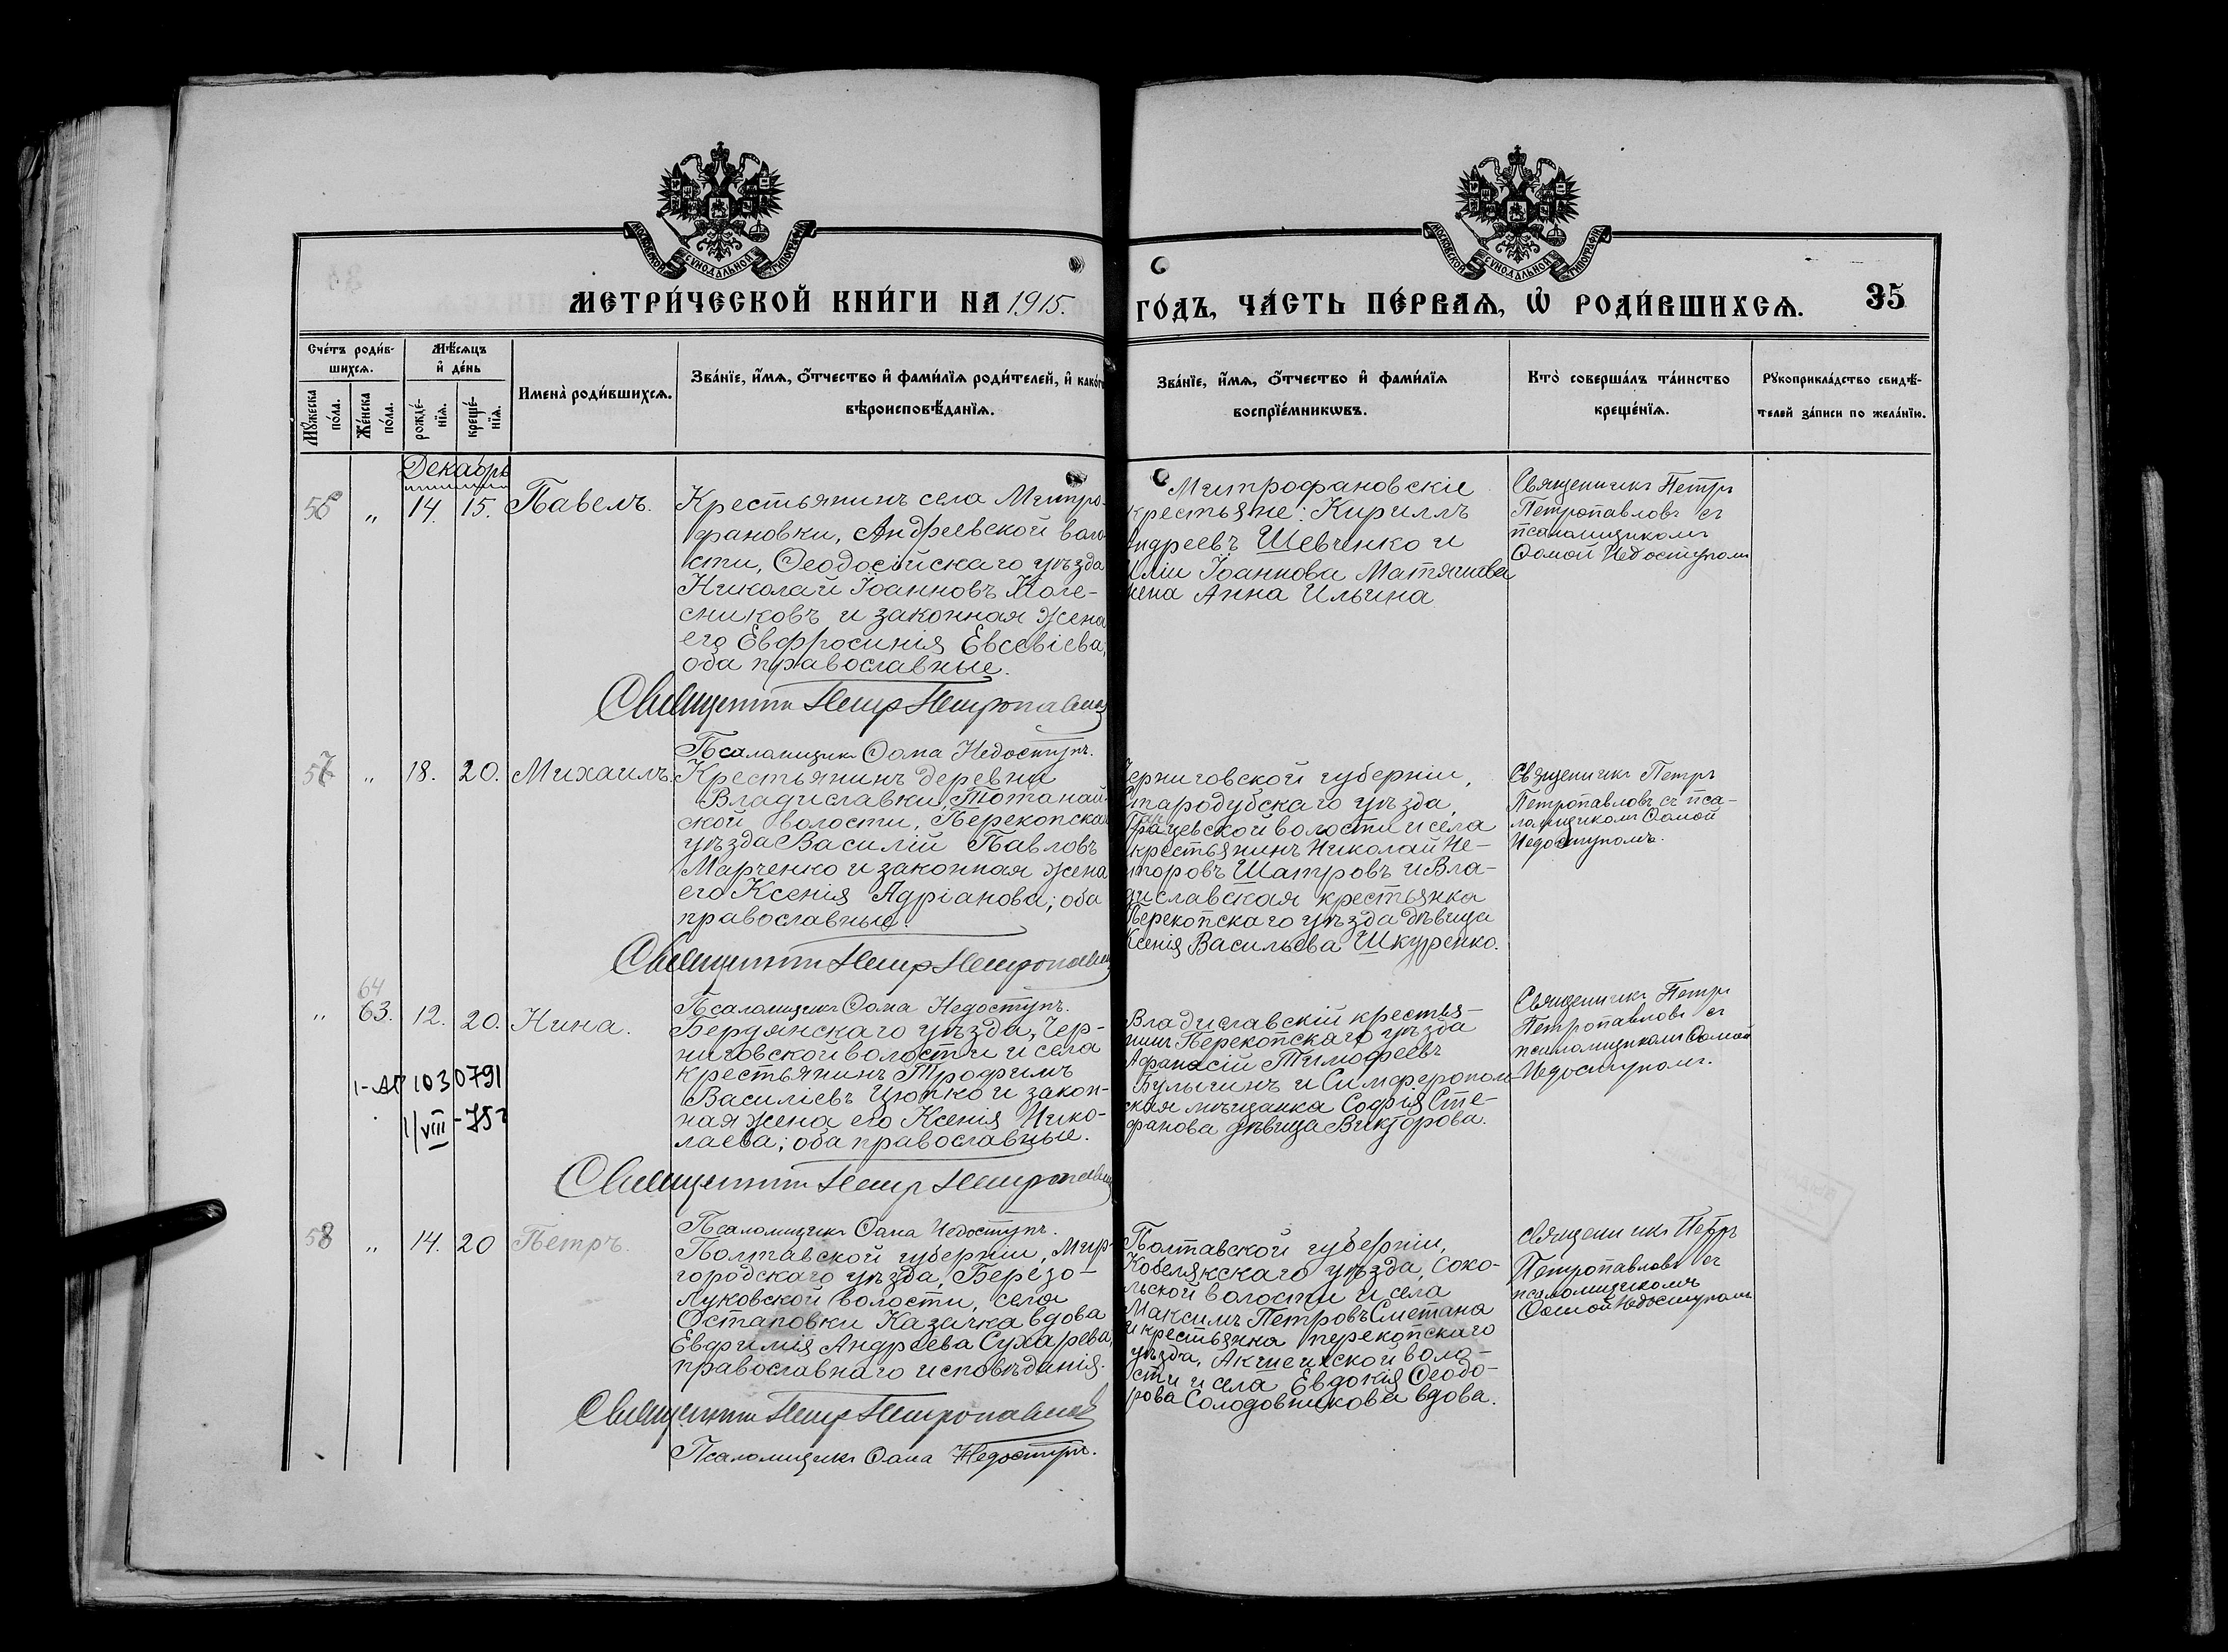 МОСКОВСКОЙ СУНОДАЛЬНОЙ ТИПОГРАФІИ
МОСКОВСКОЙ СУНОДАЛЬНОЙ ТИПОГРАФІИ
МЕТРИ́ЧЕСКОЙ КНИ́ГИ НА 1915.
ГО́ДЪ, ЧА́СТЬ ПЕ́РВАѦ, Ѡ҆ РОДИ́ВШИХСѦ. 35
Сче́тъ роди́в-
шихсѧ.
Мꙋ́жеска
по́ла.
Же́нска
по́ла.
Мѣ́сѧцъ
и҆ де́нь
рожде́-
нїѧ.
креще́-
нїѧ.
Имена̀ роди́вшихсѧ.
Зва́нїе, и҆́мѧ, ѻ҆́тчество и҆ фами́лїѧ роди́телей, и҆ како́гѡ
вѣроисповѣ́данїѧ.
Зва́нїе, и҆́мѧ, ѻ҆́тчество и҆ фами́лїѧ
воспрїе́мникѡвъ.
Кто̀ соверша́лъ та́инство
креще́нїѧ.
Рꙋкоприкла́дство свидѣ́-
телей за́писи по жела́нїю.
Декабрь
56 „ 14. 15. Павелъ.
Крестьянинъ села Митро-
фановки, Андреевской воло-
сти, Ѳеодосійскаго уѣзда
Николай Іоанновъ Коле-
сниковъ и законная жена
его Евфросинія Евсевіева;
оба православные.
Священникъ Петръ Петропавловъ
Псаломщикъ Ѳома Недоступъ.
Митрофановскіе
крестьяне: Кириллъ
Андреевъ Шевченко и
Иліи Іоаннова Матяшова
жена Анна Ильина
Священникъ Петръ
Петропавловъ съ
псаломщикомъ
Ѳомой Недоступомъ
57 „ 18. 20. Михаилъ.
Крестьянинъ деревни
Владиславки, Тотанай-
ской волости, Перекопска
уѣзда Василій Павловъ
Марченко и законная жена
его Ксенія Адріанова; оба
православные.
Священникъ Петръ Петропавловъ
Псаломщикъ Ѳома Недоступъ.
Черниговской губерніи,
Стародубскаго уѣзда,
волости и села
крестьянинъ Николай Не-
сторовъ Шатровъ и Вла-
диславская крестьянка
Перекопскаго уѣзда дѣвица
Ксенія Васильева Шкуренко.
Священникъ Петръ
Петропавловъ съ пса-
ломщикомъ Ѳомой
Недоступомъ.
64
„ 63. 12. 20. Нина.
1-АП 1030791
1/VIII-75г
Бердянскаго уѣзда, Чер-
ниговской волости и села
крестьянинъ Трофимъ
Васильевъ Цюпко и закон-
ная жена его Ксенія Нико-
лаева; оба православные.
Священникъ Петръ Петропавловъ
Псаломщикъ Ѳома Недоступъ.
Владиславскій крестья-
нинъ Перекопскаго уѣзда
Афанасій Тимофеевъ
Булыгинъ и Симферополь-
ская мѣщанка Софія Сте-
фанова дѣвица Викторова.
Священникъ Петръ
Петропавловъ съ
псаломщикомъ Ѳомой
Недоступомъ.
58 „ 14. 20 Петръ.
Полтавской губерніи, Мир-
городскаго уѣзда, Березо-
луковской волости, села
Остаповки Казачка вдова
Евфимія Андреева Сухарева,
православнаго исповѣданія.
Священникъ Петръ Петропавловъ
Псаломщикъ Ѳома Недоступъ.
Полтавской губерніи,
Кобелякскаго уѣзда, Соко-
льской волости и села
Максимъ Петровъ Сметана
и крестьянка перекопскаго
уѣзда, воло-
сти и села Евдокія Ѳеодо-
рова Солодовникова вдова.
священникъ Петръ
Петропавловъ съ
псаломщикомъ
Ѳомой Недоступомъ